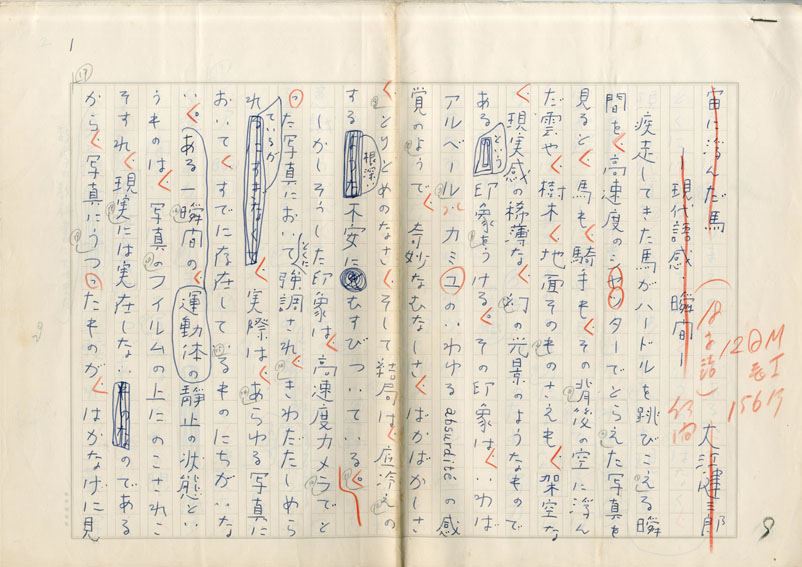 宙に浮んだ馬
—現代語感 瞬間—
大江健三郎
疾走してきた馬がハードルを跳びこえる瞬
間を、高速度のシャッターでとらえた写真を
見ると、馬も、騎手も、その背後の空に浮ん
だ雲や、樹木、地面そのものさえも、架空な
、現実感の稀薄な、幻の光景のようなもので
あるという印象をうける。その印象は、いわば
アルベール・カミユのいわゆる absurdité の感
覚のようで、奇妙なむなしさ、ばかばかしさ
、とりとめのなさ、そして結局は、底冷えの
する根深い不安にむすびついている。
しかしそうした印象は、高速度カメラでと
った写真において、とくに強調され、きわだたしめら
れているが、実際は、あらゆる写真に
おいて、すでに存在しているものにちがいな
い。ある一瞬間の、運動体の静止の状態とい
うものは、写真のフィルムの上にのこされこ
そすれ、現実には実在しないのである
から、写真にうつったものが、はかなげに見
1
17
12日M
1561